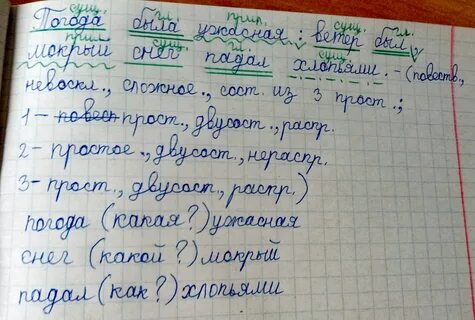 сущ. гл. прил. сущ. гл.
Погода была ужасная: ветер был,
прил. сущ. гл. сущ.
мокрый снег падал хлопьями. - (повеств.,
невоскл., сложное., сост. из 3 прост.;
1 - повесп прост., двусост., распр.
2 - простое., двусост., нераспр.
3 - прост., двусост., распр.)
погода (какая?) ужасная
снег (какой?) мокрый
падал (как?) хлопьями